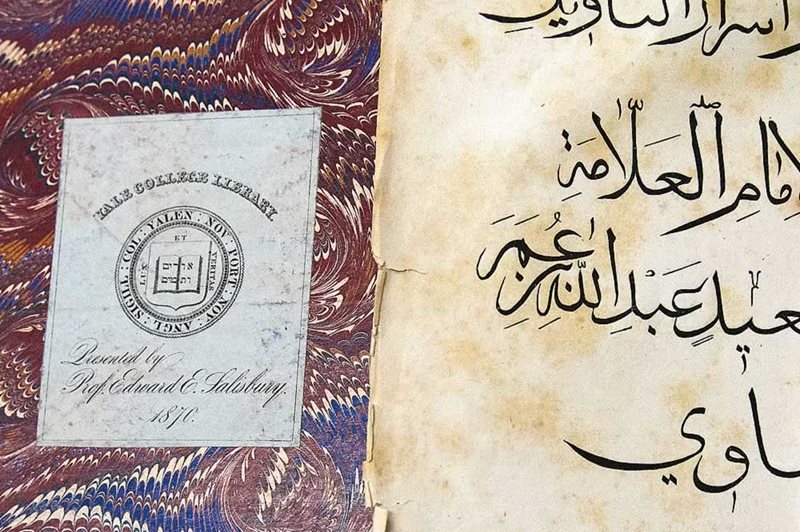 YALE COLLEGE LIBRARY
SIGILL : COL : YALEN : NOV : PORT : NOV : ANGL :
LUX ET VERITAS
אורים
ותמים
Presented by
Prof. Edward E. Salisbury.
1870.
اسرار التاويل
امامِ العَلّامَةِ
عيدٍ عَبْدِ اللّٰهِ بنِ عُمَرَ
ـاوي